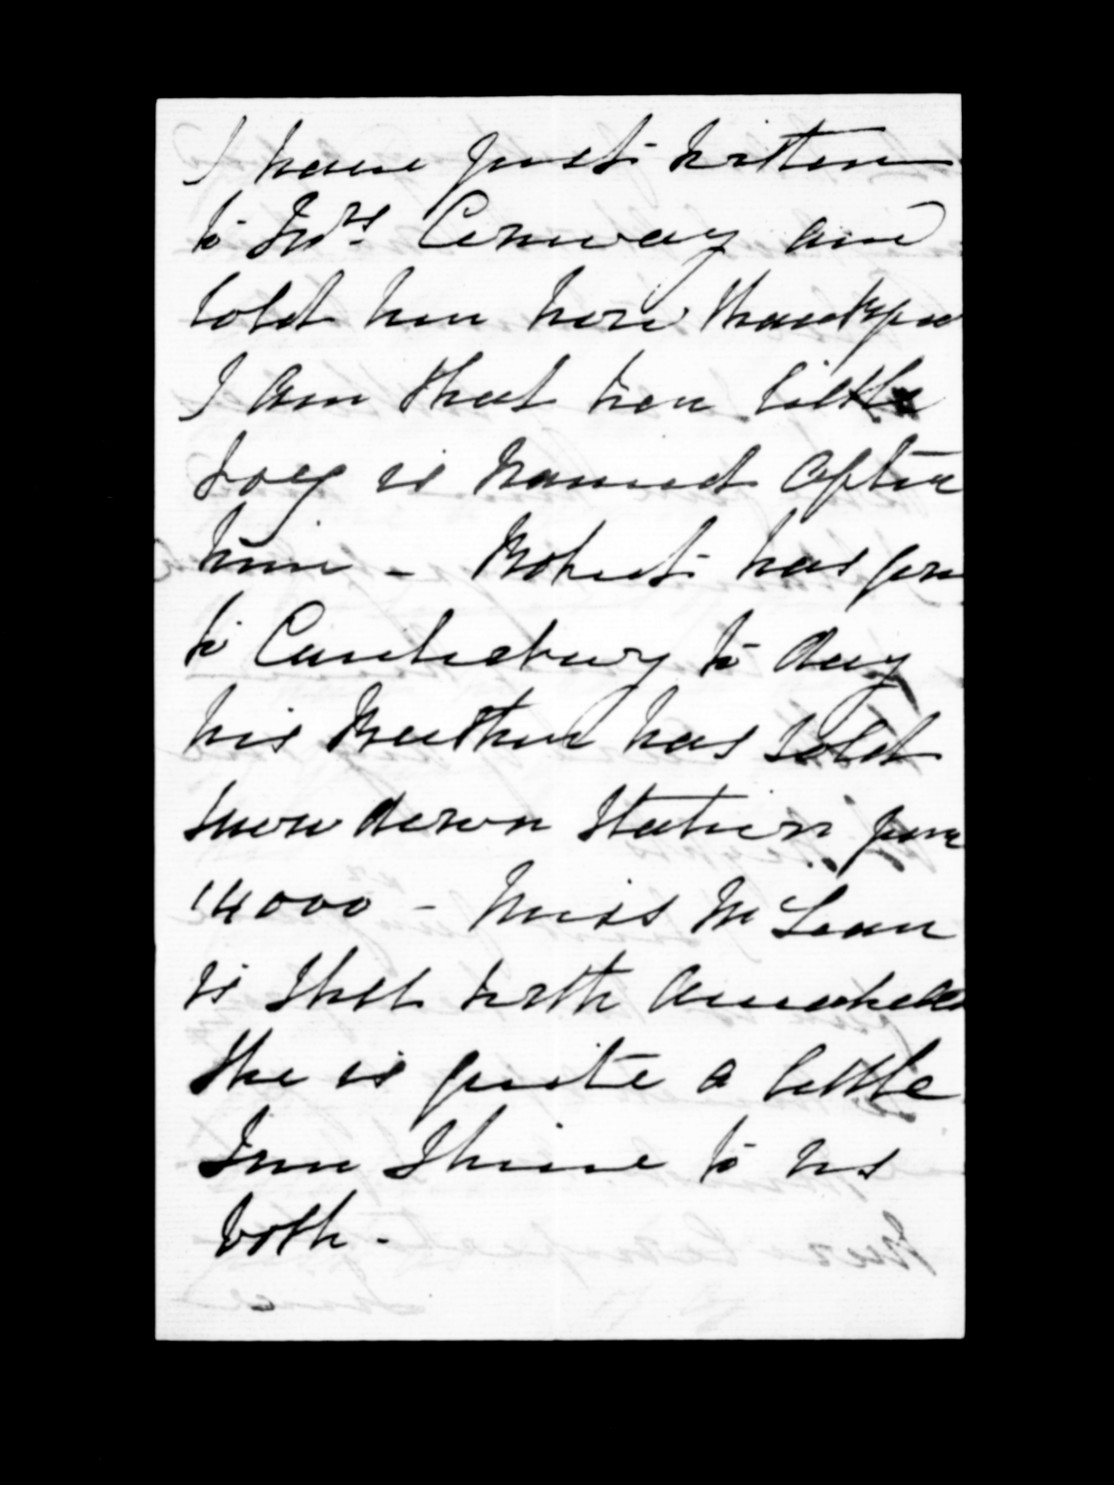 I have just written
to Mrs. Conway and
told her how thankful
I am that her little
boy is named after
him - Robert has gone
to Canterbury to day
his brother has sold
snowdown Station for
14000 - Miss McLean
is still with Annabella
She is quite a little
Sun Shine to us
both -